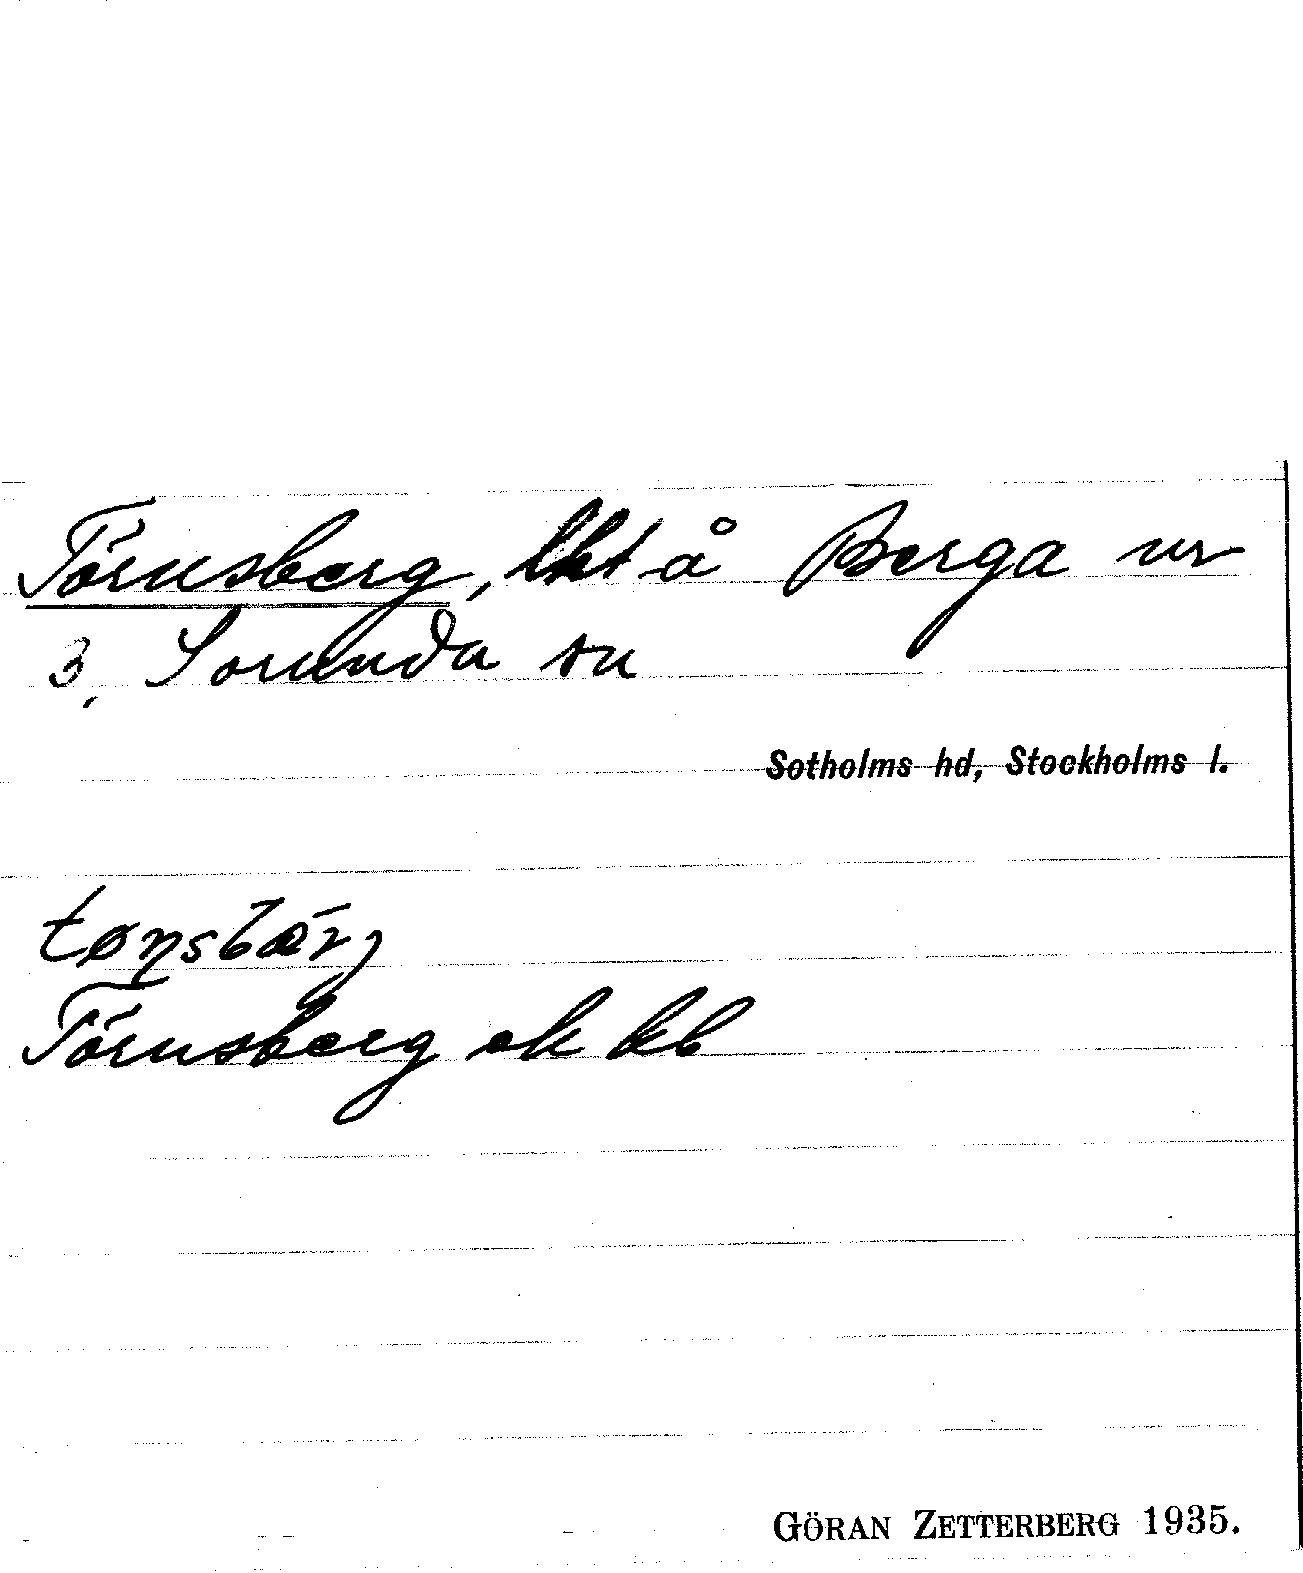 Törnsberg, lht å Berga nr
3, Sorunda sn
Sotholms hd, Stockholms l.
Törnsberg ek kb
GÖRAN ZETTERBERG 1935.